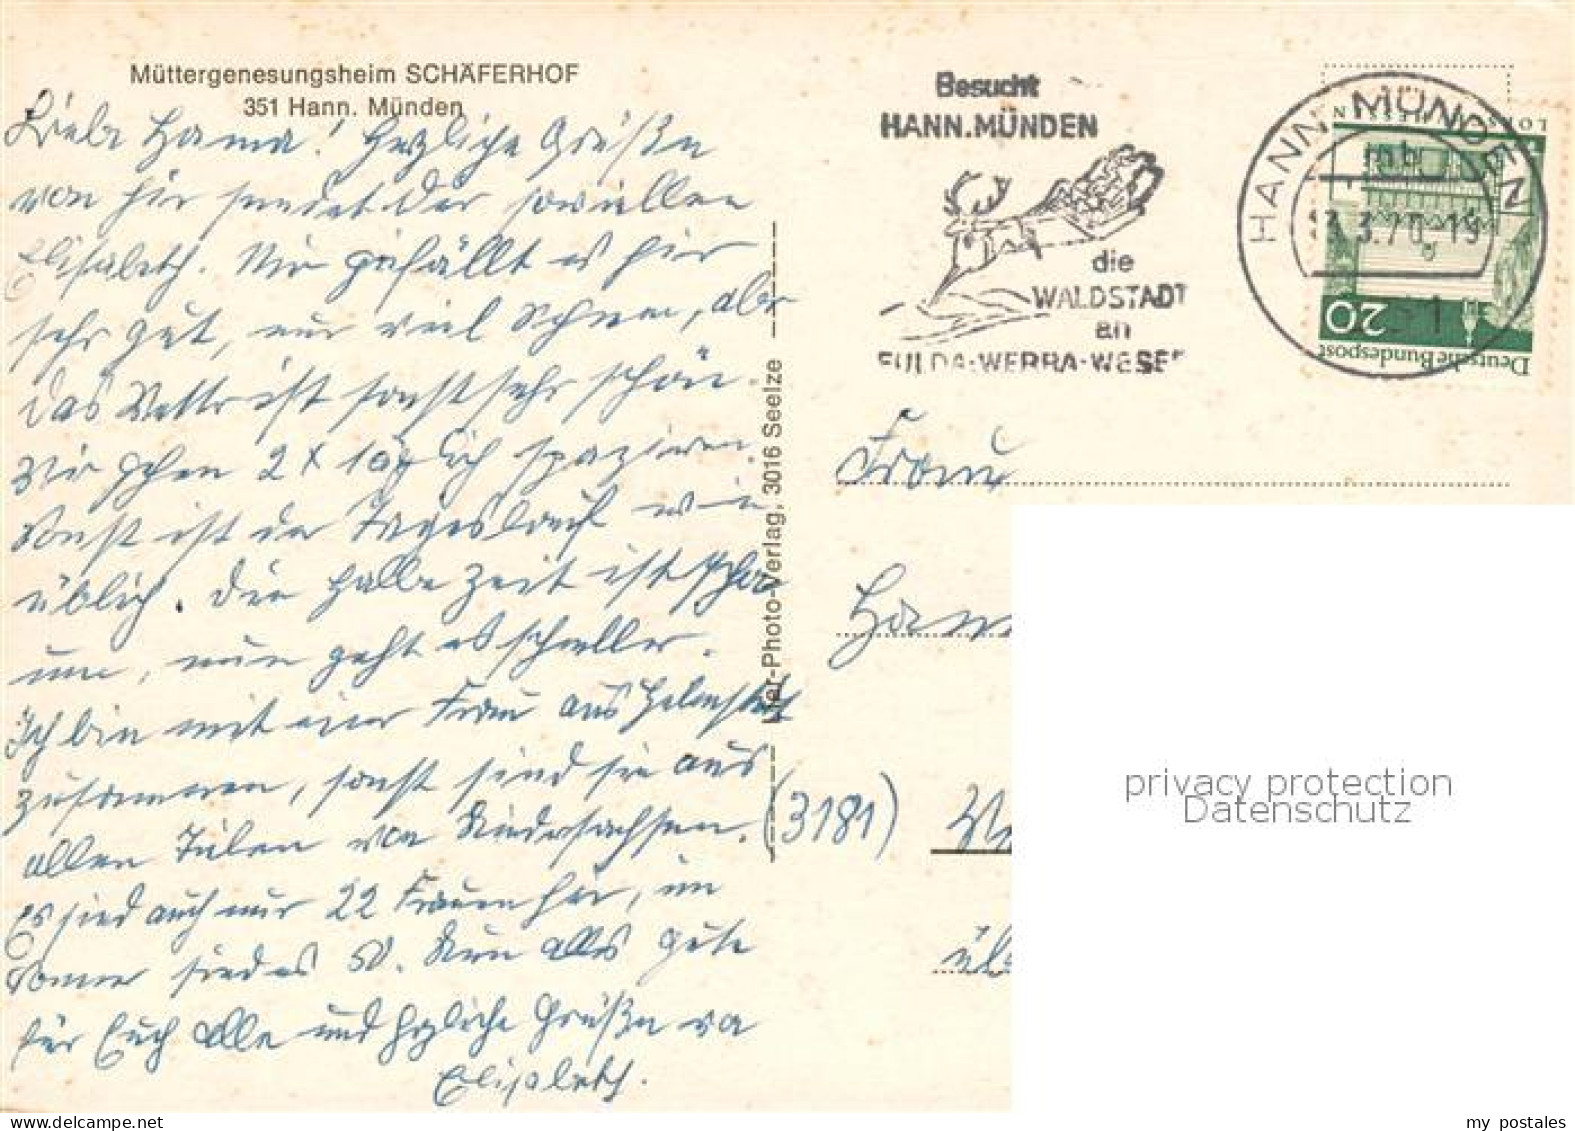 Müttergenesungsheim SCHÄFERHOF
351 Hann. Münden
Liebe Hanna! Herzliche Grüße
von hier sendet Dir
Elisabeth. Mir gefällt es hier
sehr gut, nur viel Schnee, aber
das Wetter ist sonst sehr schön
Wir gehen 2 x täglich spazieren.
Sonst ist der Tageslauf wie
üblich. Die halbe Zeit ist schon
um, nun geht es schneller.
Ich bin mit einer Frau aus Helmstedt
zusammen, sonst sind sie aus
allen Teilen von Niedersachsen.
Es sind auch nur 22 Frauen hier, im
Sommer sind es 50. Nun alles Gute
für Euch alle und herzliche Grüße von
Elisabeth.
Lier-Photo-Verlag, 3016 Seelze
Besucht
HANN.MÜNDEN
die
WALDSTADT
an
FULDA-WERRA-WESER
HANN. MÜNDEN
mb
3.70-19
20
Deutsche Bundespost
Frau
(3181)
üb
privacy protection
Datenschutz
my postales